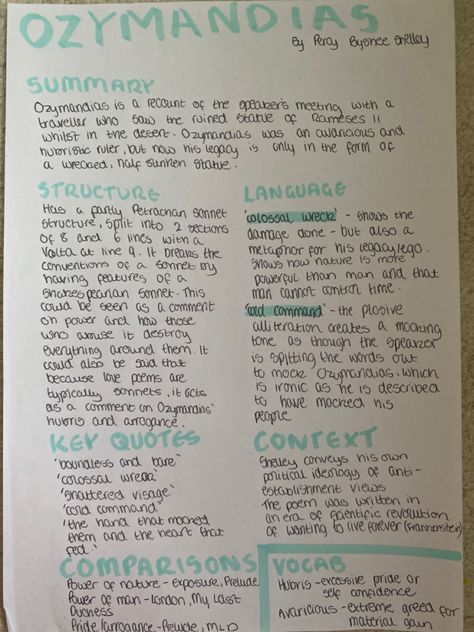 OZYMANDIAS
By Percy Byshee Shelley
SUMMARY
Ozymandias is a recount of the speaker's meeting with a
traveller who saw the ruined statue of Rameses II
whilst in the desert. Ozymandias was an avaricious and
hubristic ruler, but now his legacy is only in the form of
a wrecked, half sunken statue.
STRUCTURE
Has a partly Petrachan sonnet
structure, split into 2 sections
of 8 and 6 lines with a
Volta at line 9. It breaks the
conventions of a sonnet by
having features of a
Shakespearian sonnet. This
could be seen as a comment
on power and how those
who abuse it destroy
everything around them. It
could also be said that
because love poems are
typically sonnets, it acts
as a comment on Ozymandias'
hubris and arrogance.
LANGUAGE
'colossal wreck' - shows the
damage done - but also a
metaphor for his legacy/ego.
Shows how nature is more
powerful than man and that
man cannot control time.
'cold command' - the plosive
alliteration creates a mocking
tone as though the speaker
is spitting the words out
to mock Ozymandias, which
is ironic as he is described
to have mocked his
people
KEY QUOTES
'boundless and bare'
'colossal wreck'
'shattered visage'
'cold command'
'the hand that mocked
them and the heart that
fed.'
CONTEXT
Shelley conveys his own
political ideology of anti-
establishment views
The poem was written in
an era of scientific revolution
of wanting to live forever (Frankenstein)
COMPARISONS
Power of nature - Exposure, Prelude
Power of man - London, My Last
Duchess
Pride/arrogance - Prelude, MLD
VOCAB
Hubris - excessive pride or
self confidence
Avaricious - extreme greed for
material gain